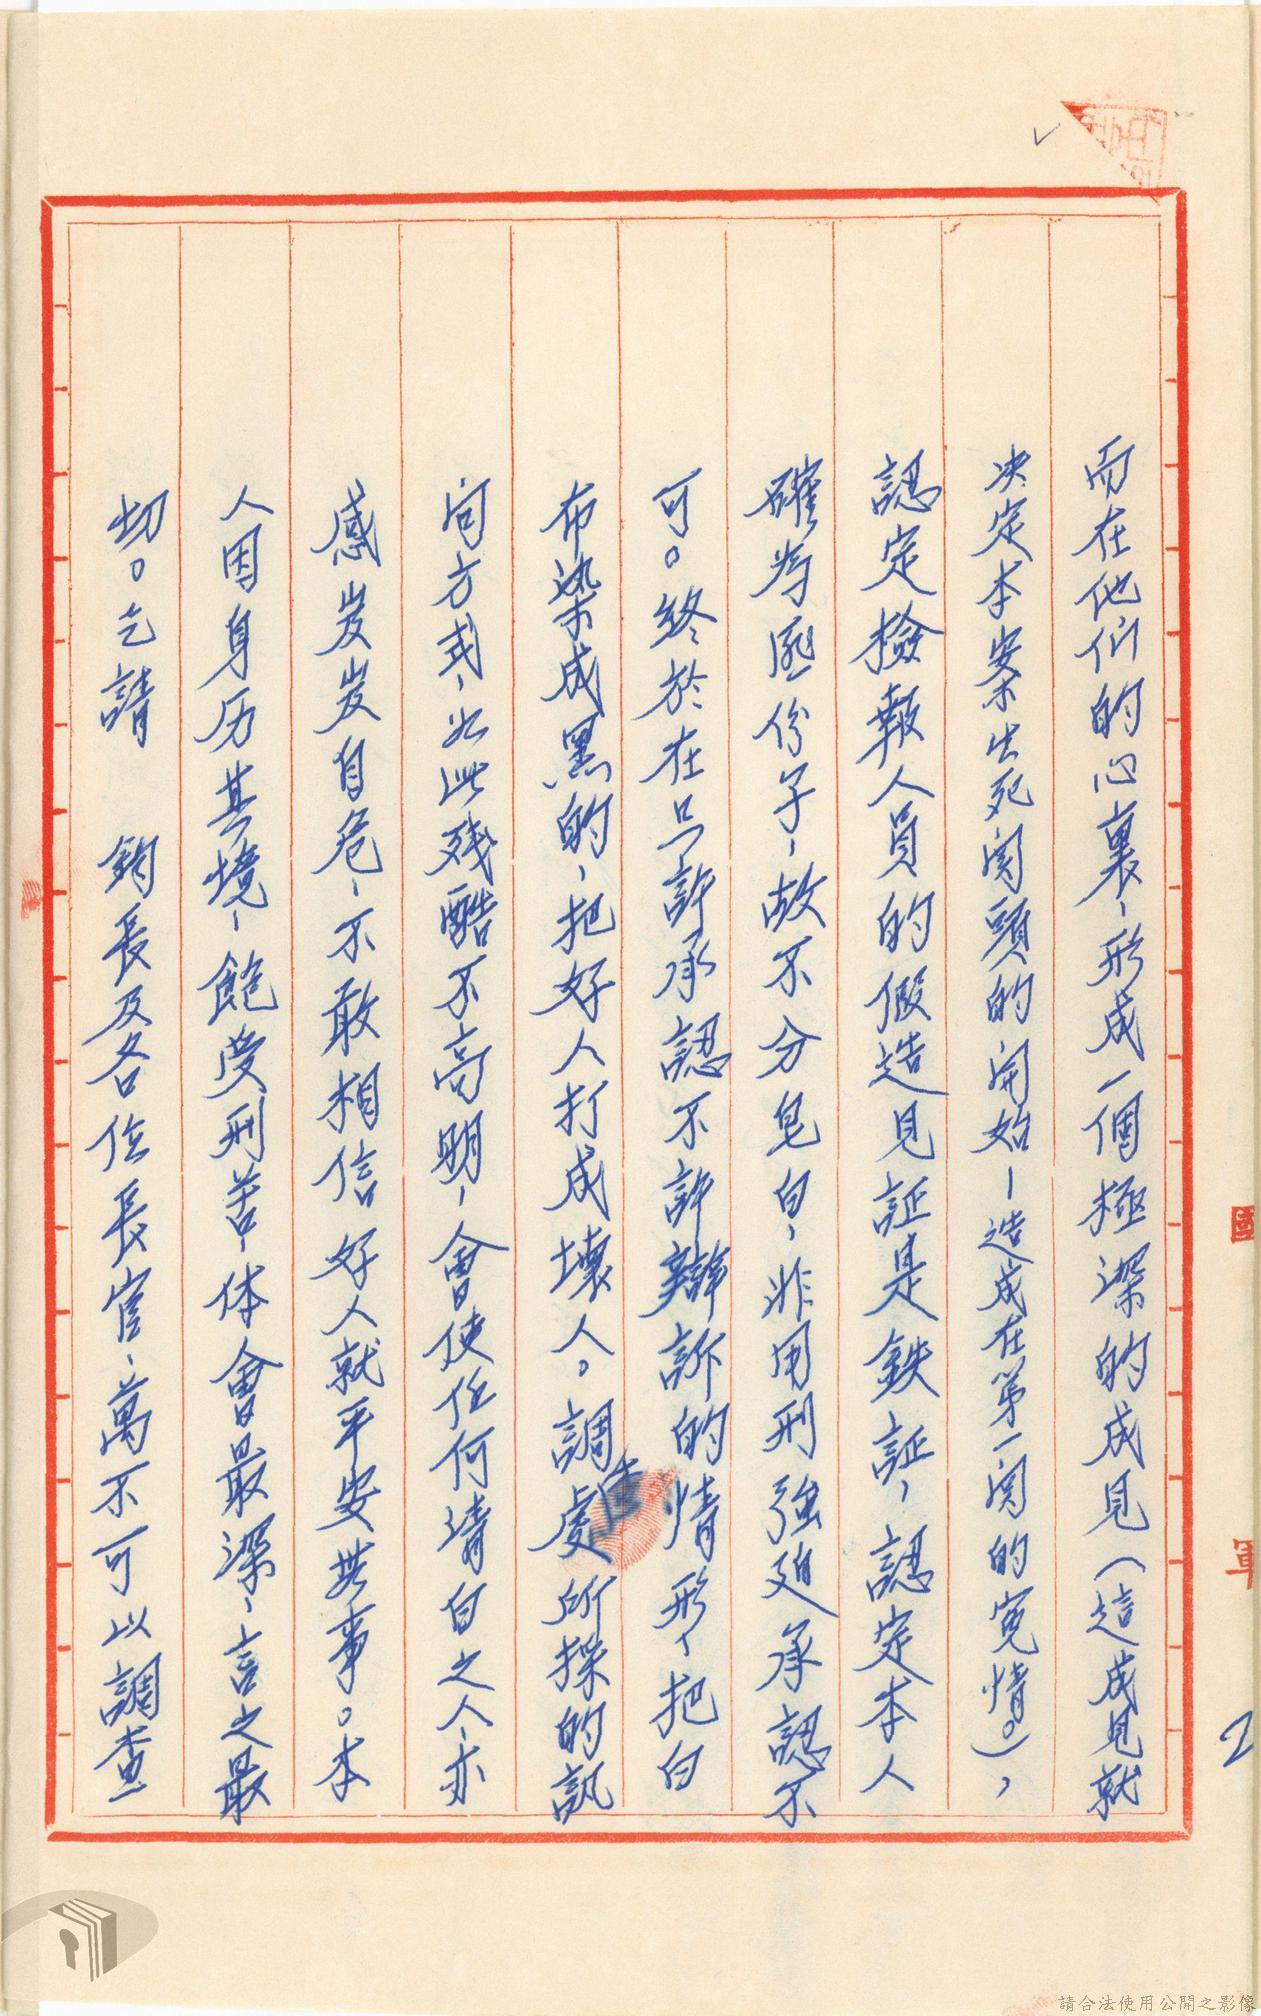 而在他们的心裏，形成一個極深的成見（這成見就
决定本案生死関頭的開始－造成在第一関的寃情。），
認定撿報人員的假造見証是鉄証，認定本人
確为匪份子，故不分皂白，非用刑強廹承認不
可。終於在只許承認不許辯訴的情形，把白
布染成黑的，把好人打成壞人。調處所採的訊
问方式，如此残酷不高明，會使任何清白之人，亦
感岌岌自危，不敢相信好人就平安無事。本
人因身历其境，飽受刑苦，体會最深，言之最
切。乞請　鈞長及各位長官，萬不可以調查
國
軍
2
請合法使用公開之影像